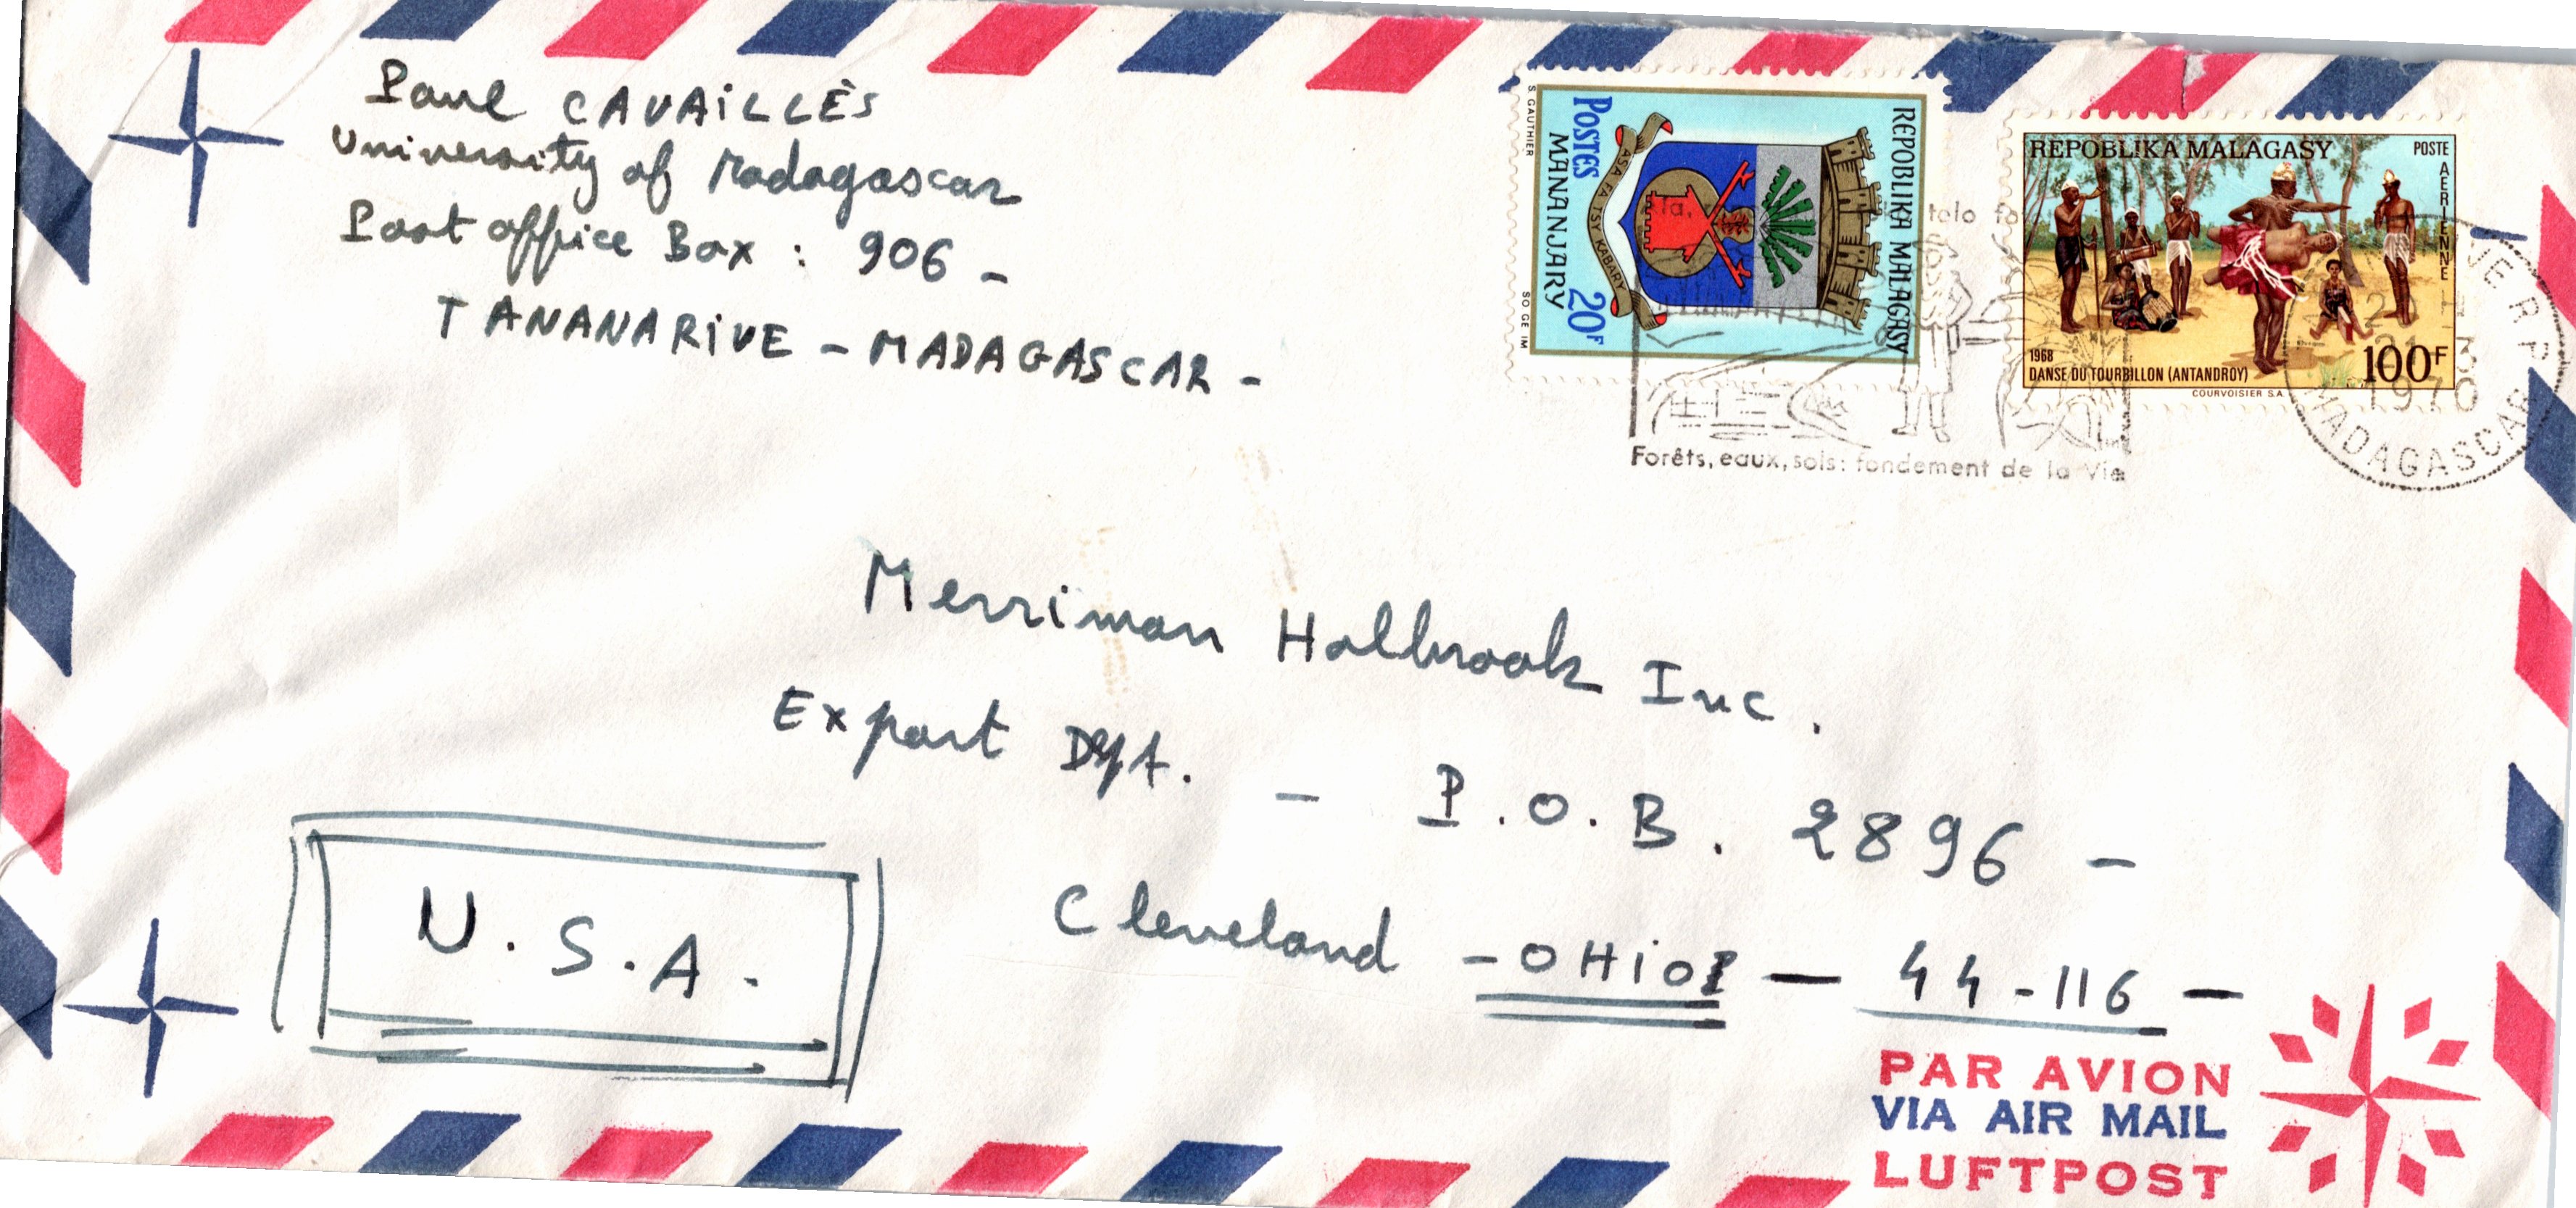 Paul CAVAILLÈS
University of Madagascar
Post office Box : 906 -
TANANARIVE - MADAGASCAR -
REPOBLIKA MALAGASY
ASA FA TSY KABARY
POSTES 20F
MANANJARY
S. GAUTHIER SO GE IM
REPOBLIKA MALAGASY
POSTE AERIENNE
1968
DANSE DU TOURBILLON (ANTANDROY)
100F
COURVOISIER S.A.
telo fo
Forêts, eaux, sols: fondement de la Vie
VE RP
21 3
1970
MADAGASCAR
Merriman Holbrook Inc.
Export Dpt. - P.O.B. 2896 -
Cleveland - OHiO - 44-116 -
U.S.A.
PAR AVION
VIA AIR MAIL
LUFTPOST